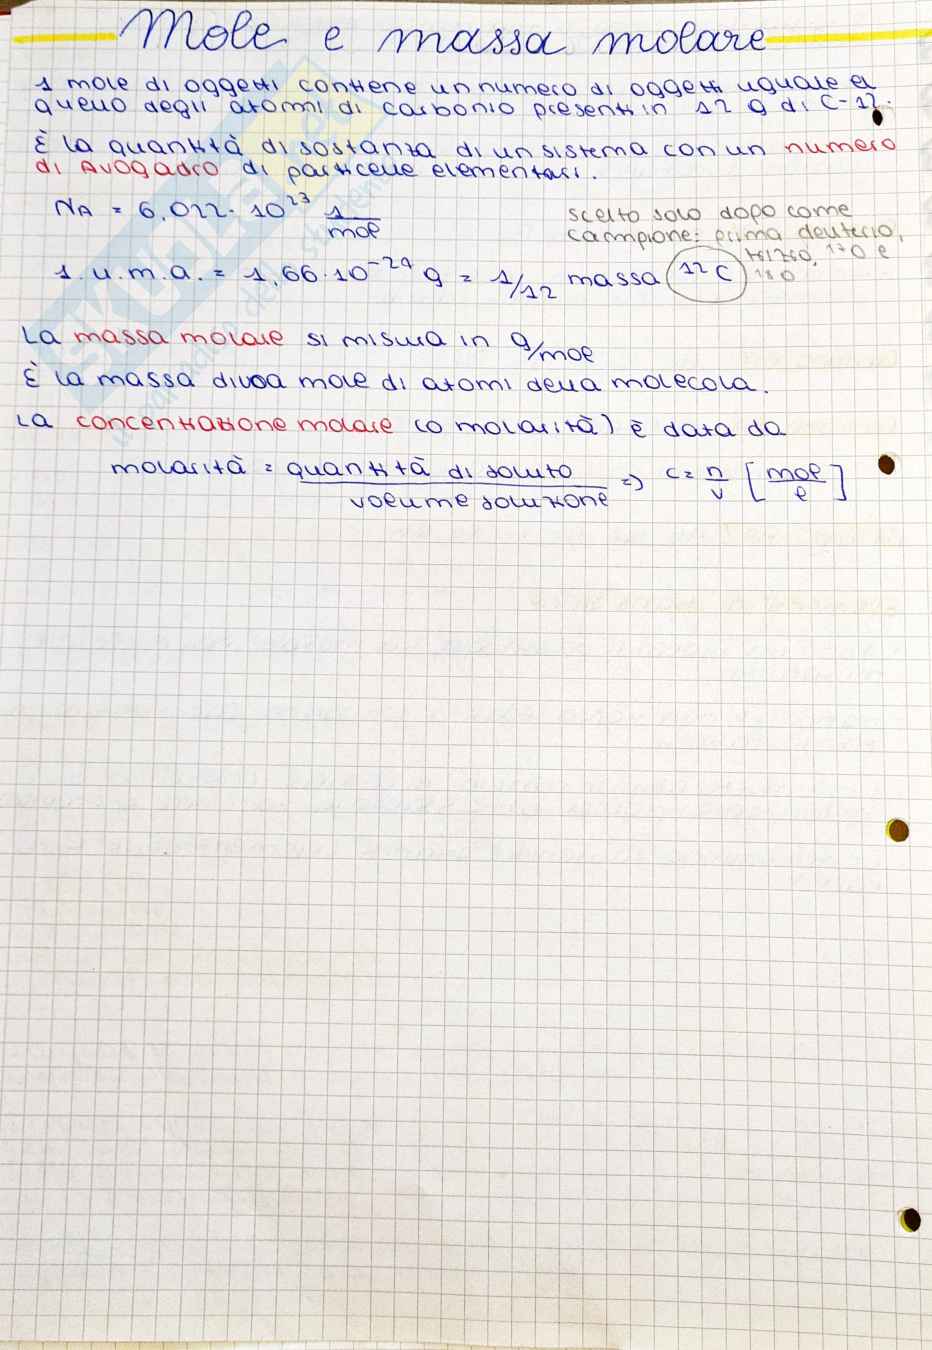 Mole e massa molare
1 mole di oggetti contiene un numero di oggetti uguale a
quello degli atomi di carbonio presenti in 12 g di C-12.
È la quantità di sostanza di un sistema con un numero
di Avogadro di particelle elementari.
NA = 6,022 · 10²³ 1/mol
scelto solo dopo come
campione: prima deuterio,
trizio, 17O e
18O
1 u.m.a. = 1,66 · 10⁻²⁴ g = 1/12 massa ¹²C
La massa molare si misura in g/mol
È la massa di una mole di atomi della molecola.
La concentrazione molare (o molarità) è data da
molarità = quantità di soluto / volume soluzione => c = n/v [mol/l]
SKUOLA.net